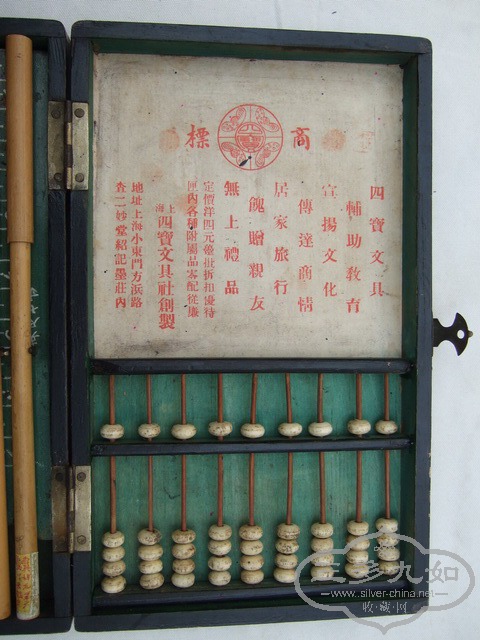 商標
四寶文具
輔助教育
宣揚文化
傳達商情
居家旅行
餽贈親友
無上禮品
定價洋四元臺批折扣優待
匣內各種附屬品零配從廉
上海四寶文具社創製
地址上海小東門方浜路
查二妙堂紹記墨莊內
三多九如
www.silver-china.net
收藏网